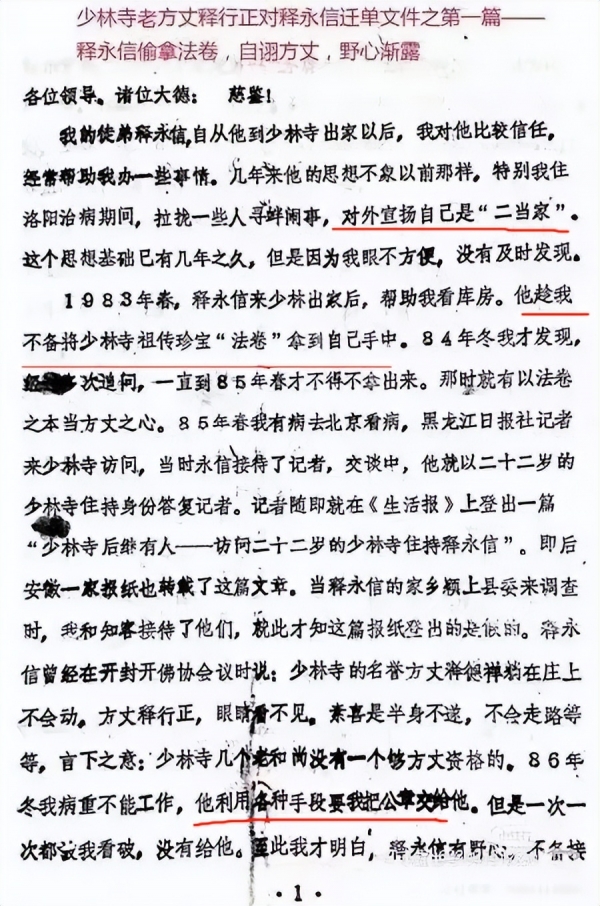 少林寺老方丈释行正对释永信迁单文件之第一篇——
释永信偷拿法卷，自诩方丈，野心渐露
各位领导。诸位大德：　慈鉴！
我的徒弟释永信，自从他到少林寺出家以后，我对他比较信任，
经常帮助我办一些事情。几年来他的思想不象以前那样，特别我住
洛阳治病期间，拉拢一些人寻衅闹事，对外宣扬自己是“二当家”。
这个思想基础已有几年之久，但是因为我眼不方便，没有及时发现。
1983年春，释永信来少林出家后，帮助我看库房。他趁我
不备将少林寺祖传珍宝“法卷”拿到自己手中。84年冬我才发现，
经多次追问，一直到85年春才不得不拿出来。那时就有以法卷
之本当方丈之心。85年春我有病去北京看病，黑龙江日报社记者
来少林寺访问，当时永信接待了记者，交谈中，他就以二十二岁的
少林寺住持身份答复记者。记者随即就在《生活报》上登出一篇
“少林寺后继有人——访问二十二岁的少林寺住持释永信”。即后
安徽一家报纸也转载了这篇文章。当释永信的家乡颍上县委来调查
时，我和知客接待了他们，就此才知这篇报纸登出的是假的。释永
信曾经在开封开佛协会议时说：少林寺的名誉方丈释德祥躺在庄上
不会动。方丈释行正，眼睛看不见。素喜是半身不遂，不会走路等
等，言下之意：少林寺几个老和尚没有一个够方丈资格的。86年
冬我病重不能工作，他利用各种手段要我把公章交给他。但是一次一
次都被我看破，没有给他。至此我才明白，释永信有野心，不备接
·1·